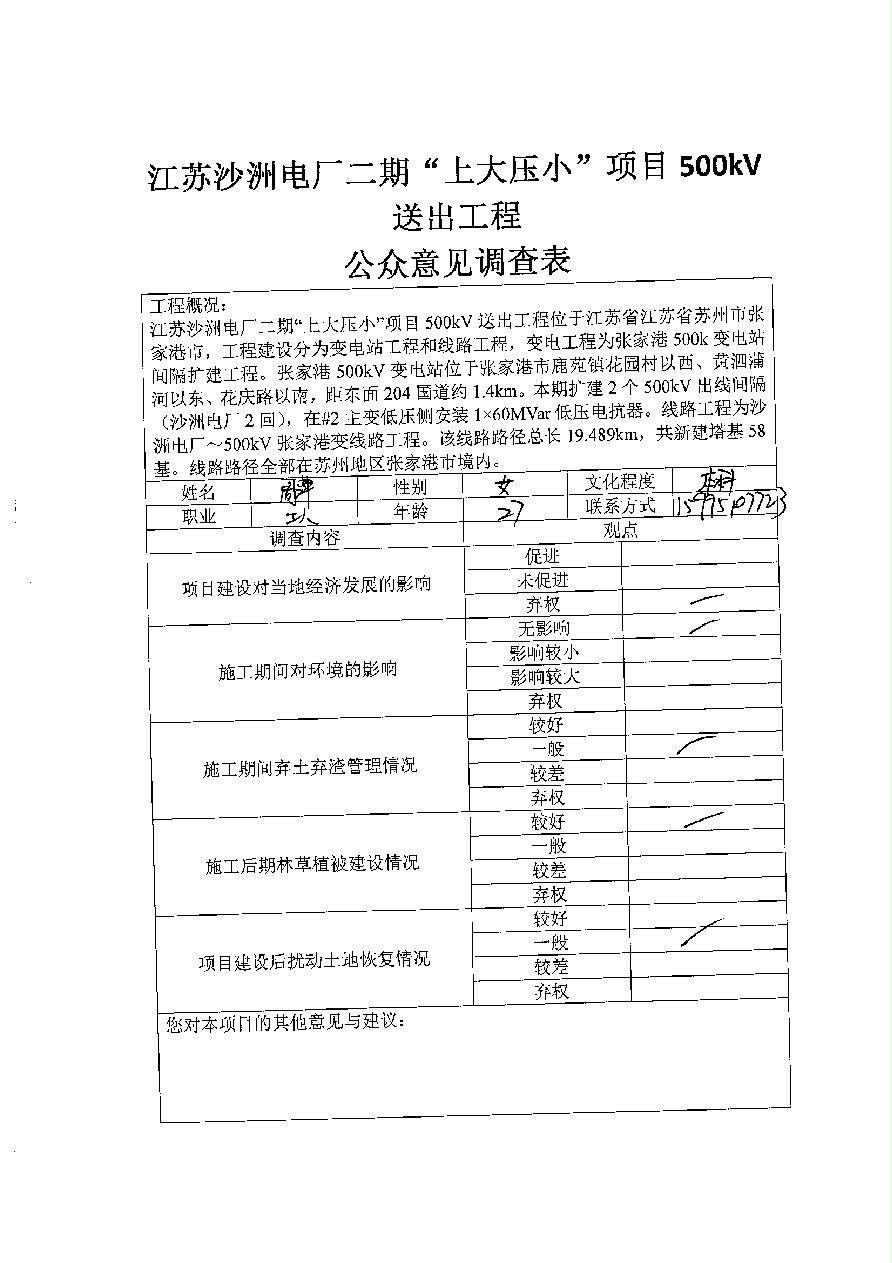 江苏沙洲电厂二期“上大压小”项目 500kV
送出工程
公众意见调查表
工程概况：
江苏沙洲电厂二期“上大压小”项目 500kV 送出工程位于江苏省江苏省苏州市张
家港市，工程建设分为变电站工程和线路工程，变电工程为张家港 500k 变电站
间隔扩建工程。张家港 500kV 变电站位于张家港市鹿苑镇花园村以西、黄泗浦
河以东、花庆路以南，距东面 204 国道约 1.4km。本期扩建 2 个 500kV 出线间隔
（沙洲电厂 2 回），在#2 主变低压侧安装 1×60MVar 低压电抗器。线路工程为沙
洲电厂～500kV 张家港变线路工程。该线路路径总长 19.489km，共新建塔基 58
基。线路路径全部在苏州地区张家港市境内。
姓名 性别 女 文化程度 本科
职业 工人 年龄 27 联系方式
调查内容 观点
项目建设对当地经济发展的影响
促进
未促进
弃权
施工期间对环境的影响
无影响
影响较小
影响较大
弃权
施工期间弃土弃渣管理情况
较好
一般
较差
弃权
施工后期林草植被建设情况
较好
一般
较差
弃权
项目建设后扰动土地恢复情况
较好
一般
较差
弃权
您对本项目的其他意见与建议：